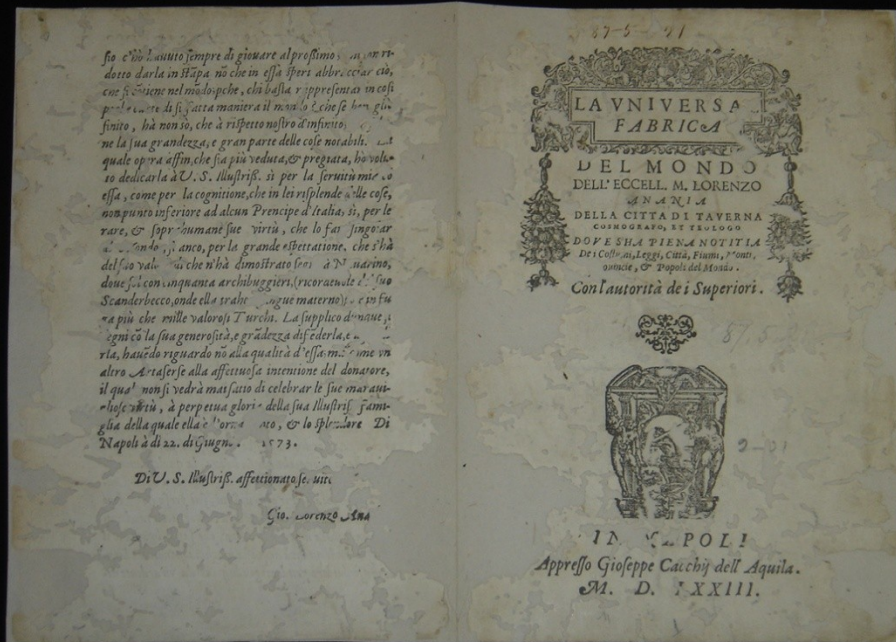 sio c'hò havuto sempre di giovare al prossimo
dotto darla in stāpa nō che in essa speri abbracciar ciò,
che si cōtiene nel mōdo, pche, chi basta rappresentar in cosi
di si fatta maniera il mondo
finito, hà non sò, che à rispetto nostro d'infinito,
ne la sua grandezza, e gran parte delle cose notabili.
quale opera affin, che sia più veduta, & pregiata, hò volu-
to dedicarla à V. S. Illustriss. sì per la servitù
essa, come per la cognitione, che in lei risplende delle cose,
non punto inferiore ad alcun Prencipe d'Italia; sì, per le
rare, & sopr'humane sue virtù, che lo fan singolar
al mondo, sì anco, per la grande espettatione, che s'hà
del suo valore che n'hà dimostrato à Navarino,
dove sol con cinquanta archibuggieri, (ricordevole del suo
Scanderbecco, onde ella trahe sangue materno)
ga più che mille valorosi Turchi. La supplico dunque
degni cō la sua generosità, e grādezza difēderla, e
rla, havēdo riguardo nō alla qualità d'essa, ma come un
altro Artaserse alla affettuosa intentione del donatore,
il qual non si vedrà mai satto di celebrar le sue maravi-
gliose virtù, à perpetua gloria della sua Illustriss. fami-
glia della quale ella è & lo splendore Di
Napoli à dì 22. di Giugn. 1573.
Di V. S. Illustriss. affettionato
Gio. Lorenzo Ana
87-5-
LA VNIVERSA
FABRICA
DEL MONDO
DELL' ECCELL. M. LORENZO
ANANIA
DELLA CITTA DI TAVERNA
COSMOGRAFO, ET TEOLOGO
DOVE S'HA PIENA NOTITIA
De i Costumi, Leggi, Città, Fiumi, Monti,
Provincie, & Popoli del Mondo.
Con l'autorità de i Superiori.
IN NAPOLI
Appresso Gioseppe Cacchij dell' Aquila.
M. D. LXXIII.